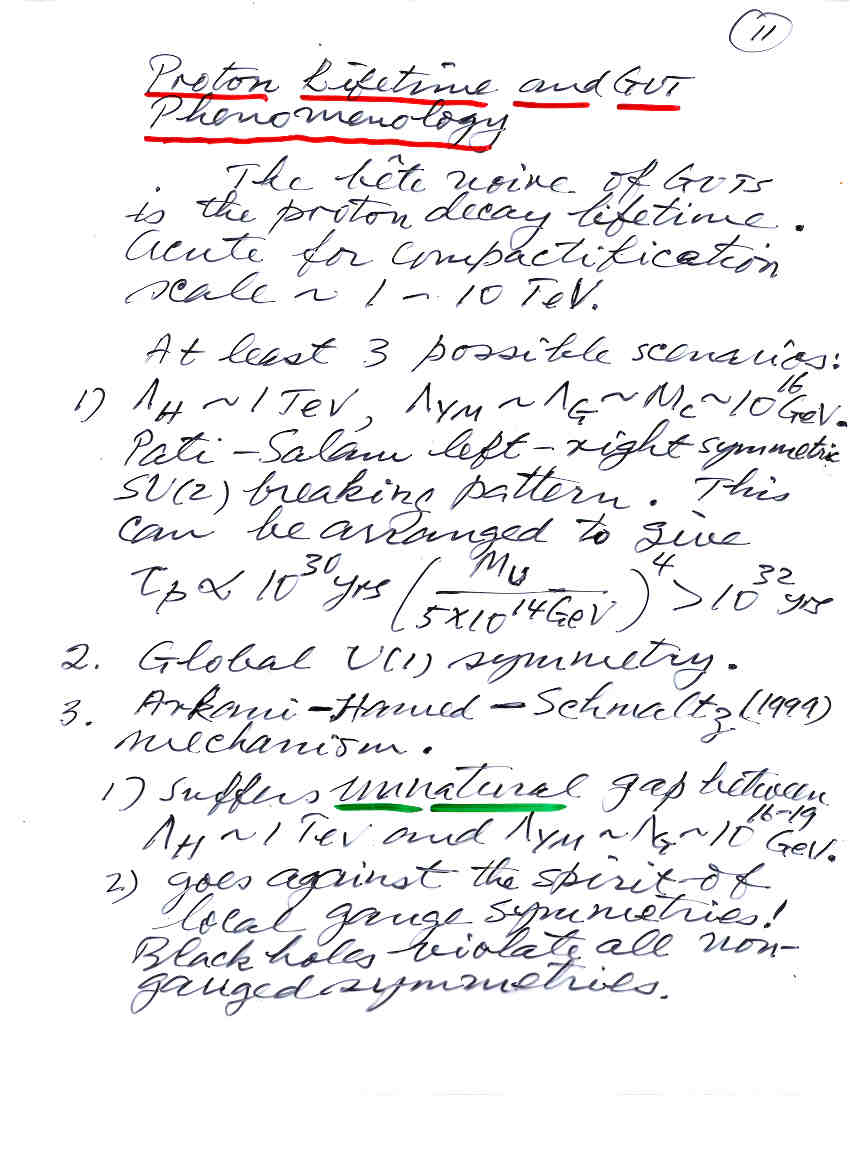 11
Proton Lifetime and GUT
Phenomenology
The bête noire of GUTs
is the proton decay lifetime.
Acute for compactification
scale ~ 1 - 10 TeV.
At least 3 possible scenarios:
1) Λ_H ~ 1 TeV, Λ_YM ~ Λ_G ~ M_c ~ 10^16 GeV.
Pati-Salam left-right symmetric
SU(2) breaking pattern. This
can be arranged to give
τ_p ∝ 10^30 yrs (M_U / 5×10^14 GeV)^4 > 10^32 yrs
2. Global U(1) symmetry.
3. Arkani-Hamed - Schmaltz (1999)
mechanism.
1) suffers unnatural gap between
Λ_H ~ 1 TeV and Λ_YM ~ Λ_G ~ 10^16-19 GeV.
2) goes against the spirit of
local gauge symmetries!
Black holes violate all non-
gauged symmetries.